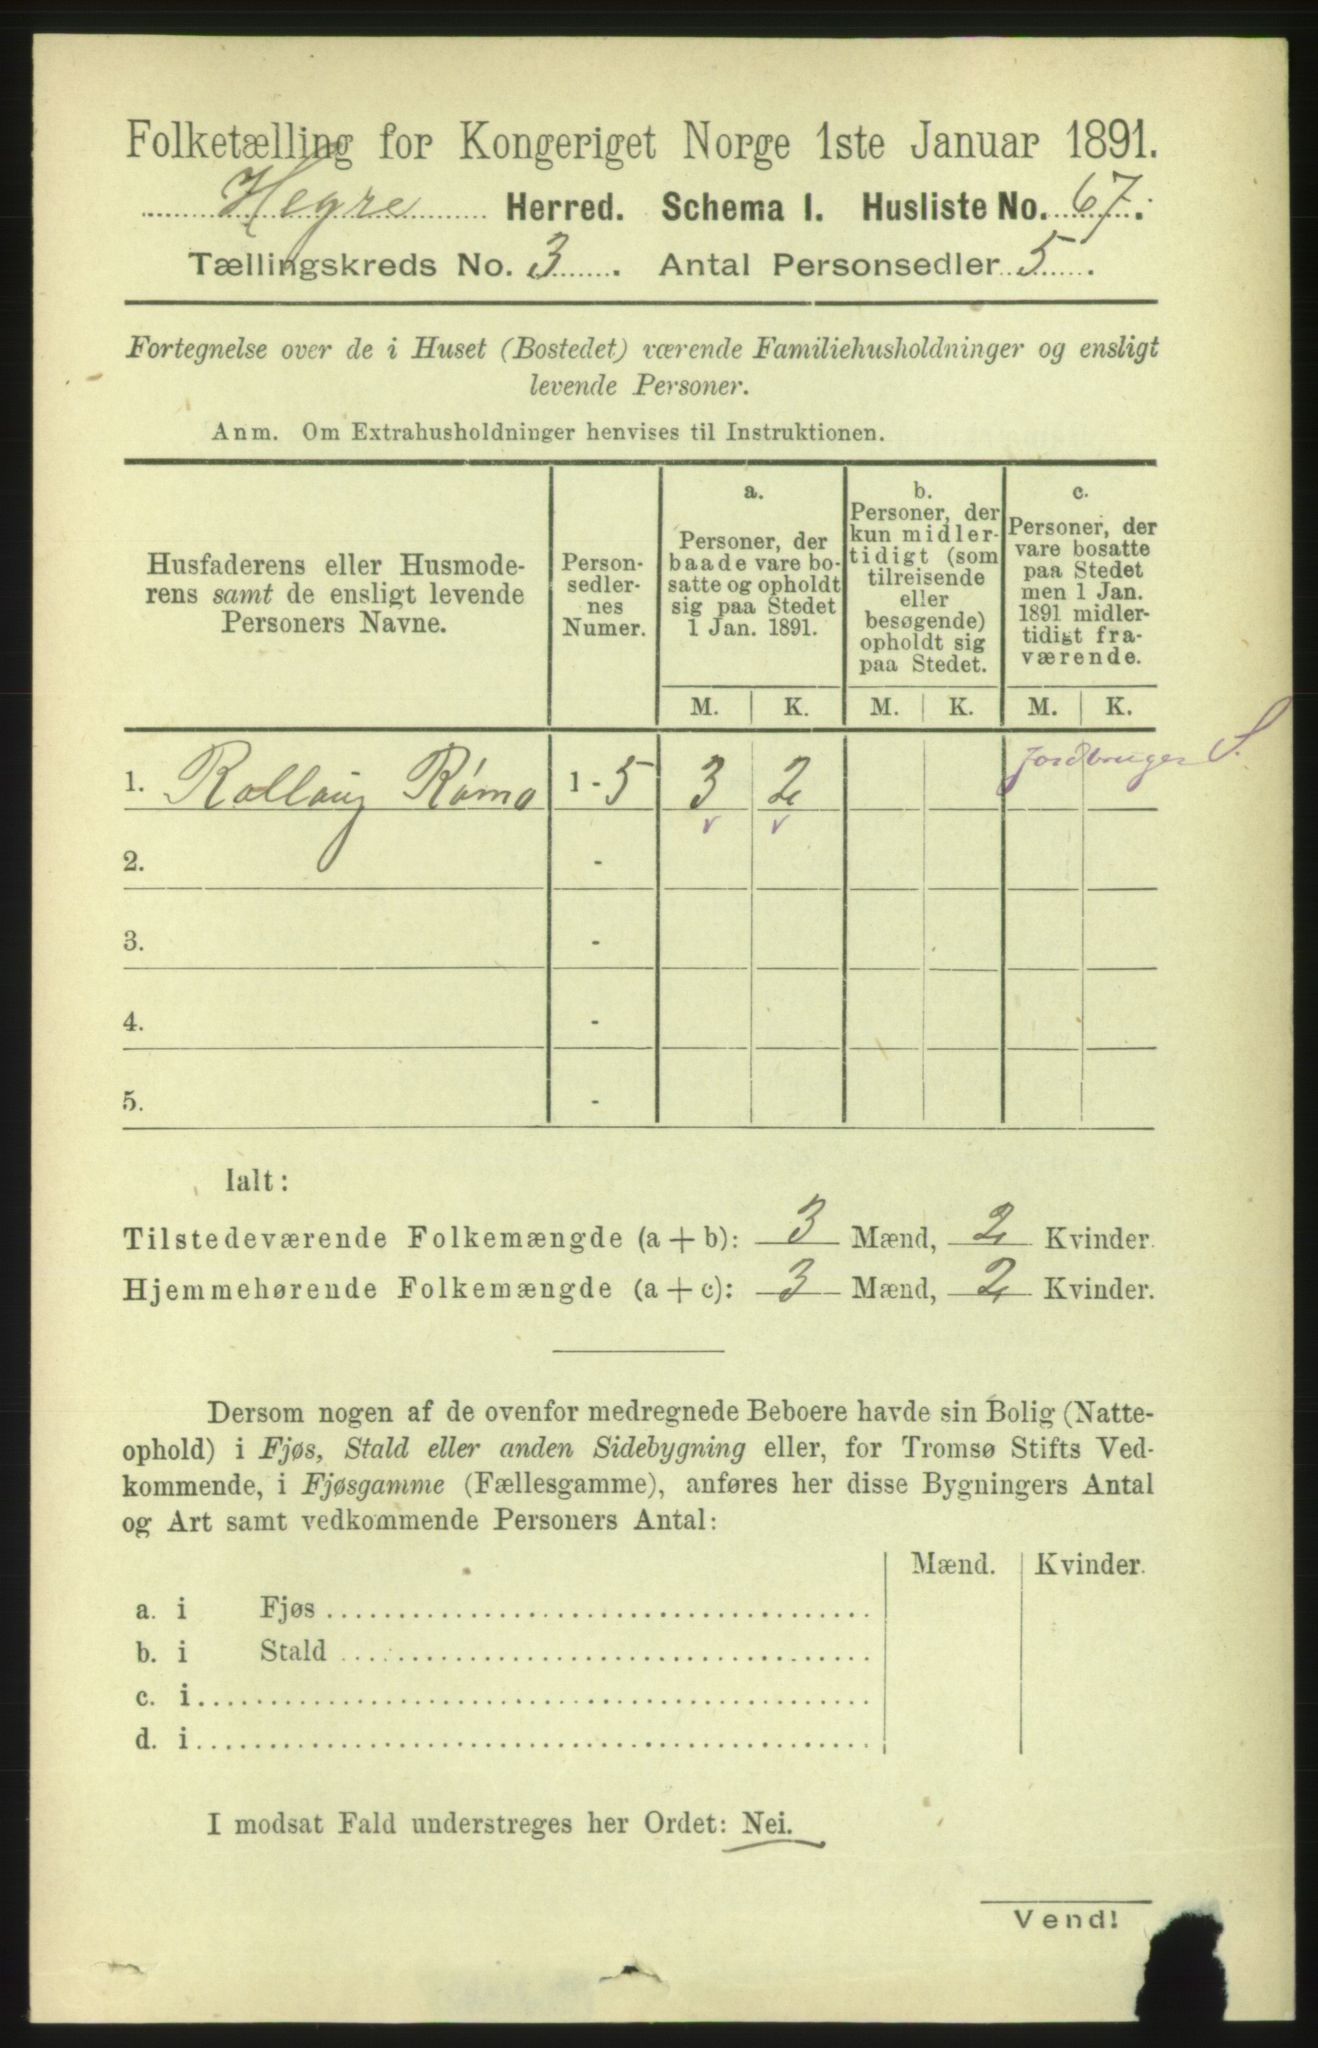 Folketælling for Kongeriget Norge 1ste Januar 1891.
Hegre Herred. Schema I. Husliste No. 67.
Tællingskreds No. 3. Antal Personsedler 5.
Fortegnelse over de i Huset (Bostedet) værende Familiehusholdninger og ensligt
levende Personer.
Anm. Om Extrahusholdninger henvises til Instruktionen.
Husfaderens eller Husmode-
rens samt de ensligt levende
Personers Navne.
Person-
sedler-
nes
Numer.
a.
Personer, der
baade vare bo-
satte og opholdt
sig paa Stedet
1 Jan. 1891.
b.
Personer, der
kun midler-
tidigt (som
tilreisende
eller
besøgende)
opholdt sig
paa Stedet.
c.
Personer, der
vare bosatte
paa Stedet
men 1 Jan.
1891 midler-
tidigt fra-
værende.
M. K. M. K. M. K.
1. Rollaug Rømo 1 - 5 3 2 Jordbruger S.
v v
2. -
3. -
4. -
5. -
Ialt:
Tilstedeværende Folkemængde (a + b): 3 Mænd, 2 Kvinder.
Hjemmehørende Folkemængde (a + c): 3 Mænd, 2 Kvinder.
Dersom nogen af de ovenfor medregnede Beboere havde sin Bolig (Natte-
ophold) i Fjøs, Stald eller anden Sidebygning eller, for Tromsø Stifts Ved-
kommende, i Fjøsgamme (Fællesgamme), anføres her disse Bygningers Antal
og Art samt vedkommende Personers Antal:
Mænd. Kvinder.
a. i Fjøs
b. i Stald
c. i
d. i
I modsat Fald understreges her Ordet: Nei.
Vend!